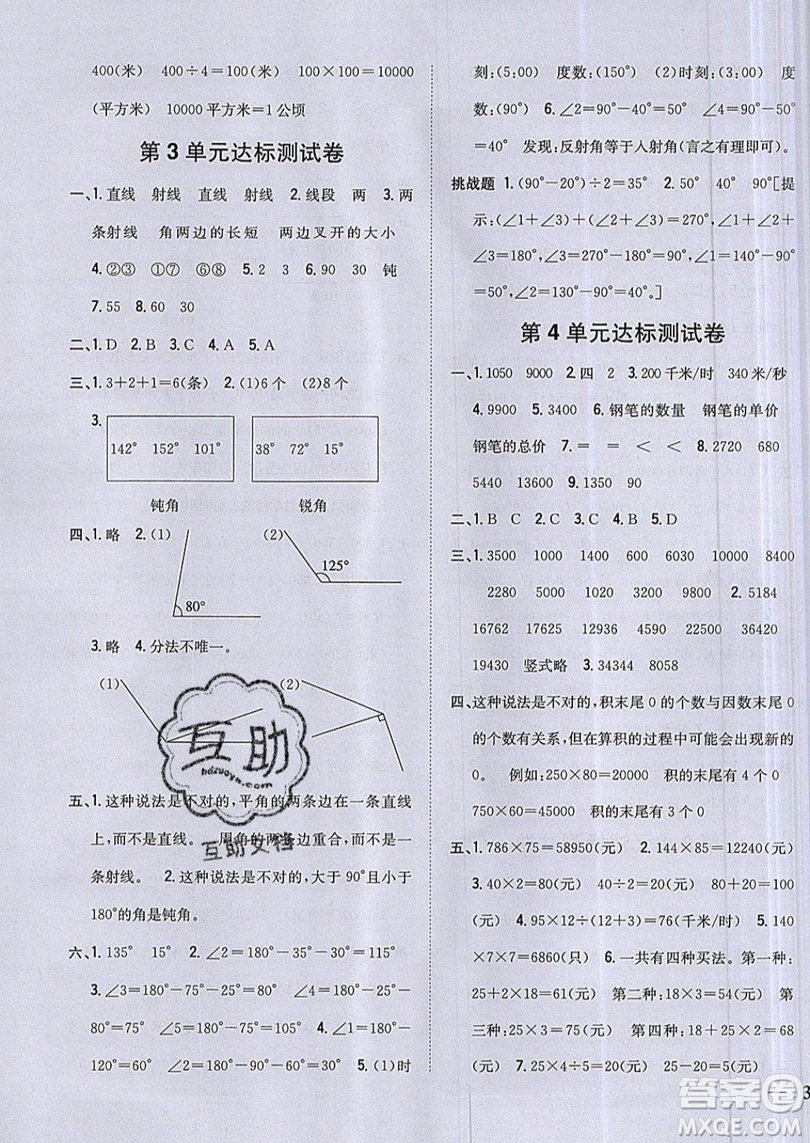 400(米) 400÷4=100(米) 100×100=10000
(平方米) 10000平方米=1公顷
第3单元达标测试卷
一、1.直线 射线 直线 射线 2.线段 两 3.两
条射线 角两边的长短 两边叉开的大小
4.②③ ①⑦ ⑥⑧ 5.2 3 6.90 30 钝
7.55 8.60 30
二、1.D 2.B 3.C 4.A 5.A
三、1.3+2+1=6(条) 2.(1)6个 (2)8个
3.
142° 152° 101°
38° 72° 15°
钝角
锐角
四、1.略 2.(1)
(2)
125°
80°
3.略 4.分法不唯一。
(1)
(2)
五、1.这种说法是不对的,平角的两条边在一条直线
上,而不是直线。一周角的两条边重合,而不是一
条射线。 2.这种说法是不对的,大于90°且小于
180°的角是钝角。
六、1.135° 15° 2.∠2=180°-35°-30°=115°
3.∠3=180°-55°=125° ∠4=180°-125°=
55° ∠5=180°-55°=125° 4.∠1=180°-
120°=60° ∠2=180°-90°-60°=30° 5.(1)时
刻:(5:00) 度数:(150°) (2)时刻:(3:00) 度
数:(90°) 6.∠2=90°-50°=40° ∠4=90°-50°
=40° 发现:反射角等于入射角(言之有理即可)。
挑战题 1.(90°-20°)÷2=35° 2.50° 40° 90°[提
示:(∠1+∠3)+(∠2+∠3)=270°,∠1+∠2
+∠3=180°,∠3=270°-180°=90°,∠1=180°
-∠3-∠2=180°-90°-40°=50°。]
第4单元达标测试卷
一、1.1050 9000 2.四 2 3.200千米/时 340米/秒
4.9900 5.3400 6.钢笔的数量 钢笔的单价
钢笔的总价 7.= = < < 8.2720 680
5440 13600 9.1350 90
二、1.B C 2.C 3.B 4.B 5.D
三、1.3500 1000 1400 6030 10000 8400
2280 5000 2400 7000 7200 2.5184
16762 10527 13515 9594 32000 36420
19430 竖式略 3.34344 8058
四、这种说法是不对的,积末尾0的个数与因数末尾0
的个数有关系,但在算积的过程中可能会出现新的
0。 例如:250×80=20000 积的末尾有4个0
750×60=45000 积的末尾有3个0
五、1.786×75=58950(元) 2.144×85=12240(元)
3.40×2=80(元) 40÷2=20(元) 80+20=100
(元) 4.95×12÷(12+3)=76(千米/时) 5.140
×7×7=6860(只) 6.一共有四种买法。第一种:
25+2×18=61(元) 第二种:18×3=54(元) 第
三种:25×3=75(元) 第四种:18+25×2=68
(元) 7.25×4÷5=20(元) 25-20=5(元)
互助
hdzuoye.com
互助文档
答案圈
MXQE.COM
3